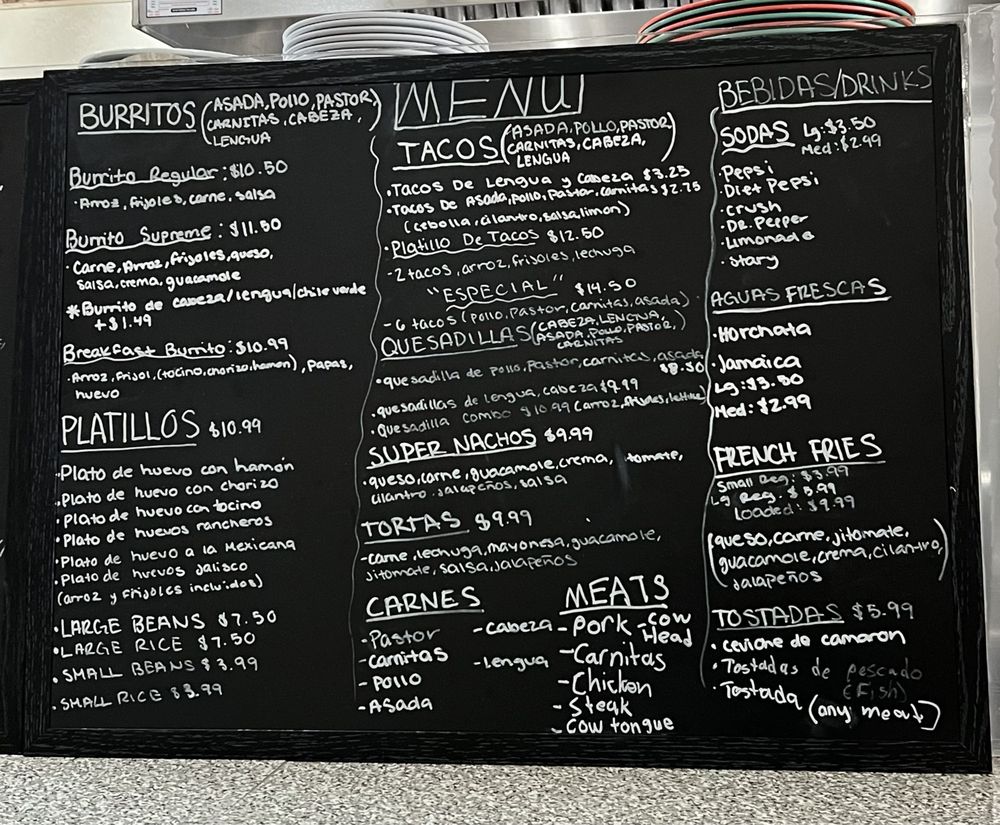 BURRITOS (ASADA, POllO, PASTOR,
CARNITAS, CABEZA,
LENGUA)
Burrito Regular: $10.50
• Arroz, frijoles, carne, salsa
Burrito Supreme: $11.50
• Carne, Arroz, frijoles, queso,
salsa, crema, guacamole
* Burrito de cabeza/lengua/chile verde
+ $1.49
Breakfast Burrito: $10.99
• Arroz, Frijol, (tocino, chorizo, hamon), papas,
huevo
PLATILLOS $10.99
• Plato de huevo con hamón
• Plato de huevo con chorizo
• Plato de huevo con tocino
• Plato de huevos rancheros
• Plato de huevo a la Mexicana
• Plato de huevos Jalisco
(arroz y frijoles incluidos)
• LARGE BEANS $7.50
• LARGE RICE $7.50
• SMALL BEANS $3.99
• SMALL RICE $3.99
MENU
TACOS (ASADA, POLLO, PASTOR
CARNITAS, CABEZA,
LENGUA)
• Tacos De Lengua y Cabeza $3.25
• Tacos De Asada, Pollo, Pastor, Carnitas $2.75
(cebolla, cilantro, salsa, limon)
• Platillo De Tacos $12.50
- 2 tacos, arroz, frijoles, lechuga
"ESPECIAL" $14.50
- 6 tacos (pollo, Pastor, Carnitas, asada)
QUESADILLAS (CABEZA, LENGUA,
ASADA, POLLO, PASTOR,
CARNITAS)
• quesadilla de pollo, Pastor, carnitas, asada
$8.50
• quesadillas de lengua, cabeza $9.99
• Quesadilla Combo $10.99 (arroz, frijoles, lettuce)
SUPER NACHOS $9.99
• queso, carne, guacamole, crema, jitomate,
cilantro, jalapeños, salsa
TORTAS $9.99
- carne, lechuga, mayonesa, guacamole,
jitomate, salsa, jalapeños
CARNES
- Pastor
- carnitas
- Pollo
- Asada
- cabeza
- lengua
MEATS
- Pork
- Cow
Head
- Carnitas
- Chicken
- Steak
- Cow tongue
BEBIDAS/DRINKS
SODAS Lg: $3.50
Med: $2.99
• Pepsi
• Diet Pepsi
• crush
• DR. Pepper
• Limonade
• Stary
AGUAS FRESCAS
• Horchata
• Jamaica
Lg: $3.50
Med: $2.99
FRENCH FRIES
Small Reg: $3.99
Lg Reg. $5.99
Loaded: $9.99
(queso, carne, jitomate,
guacamole, crema, cilantro,
jalapeños)
TOSTADAS $5.99
• ceviche de camaron
• Tostadas de pescado
(Fish)
• Tostada (any meat)